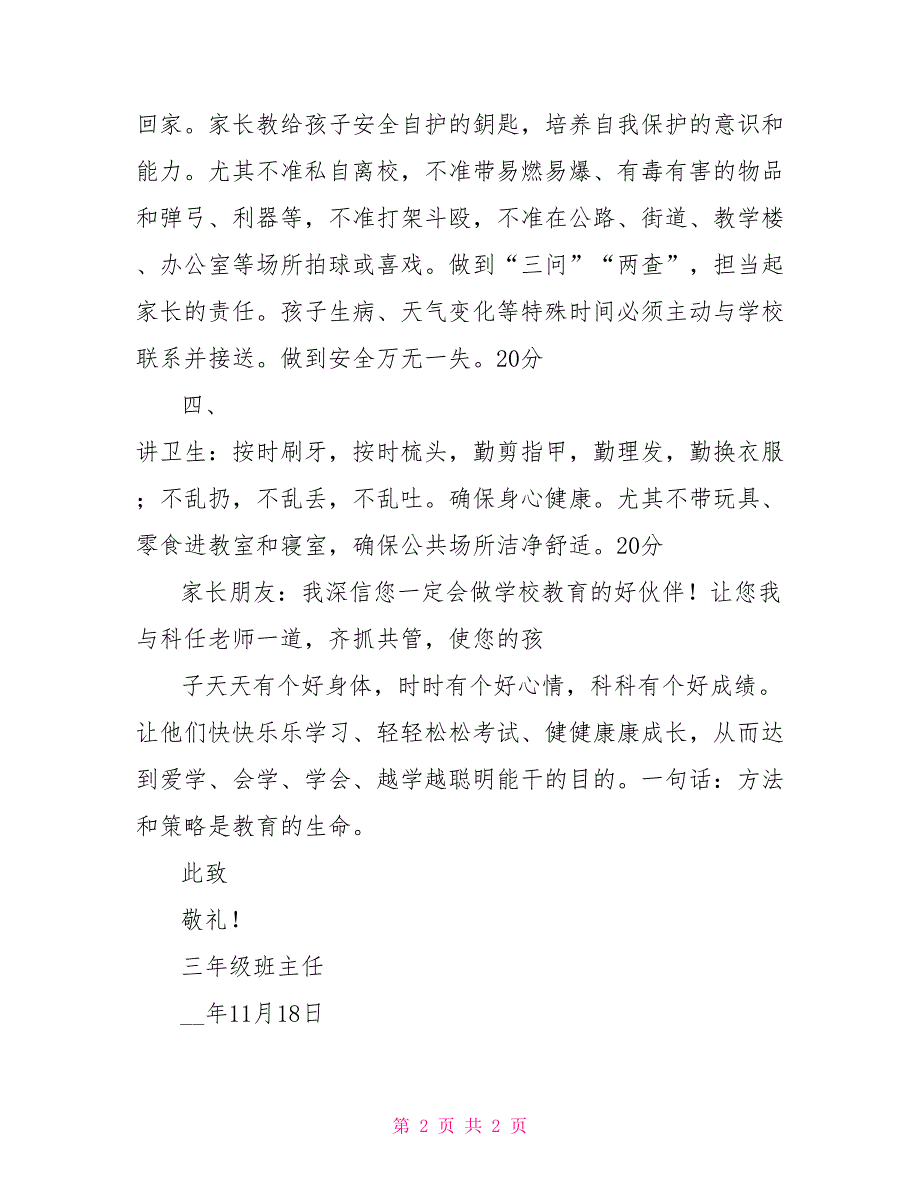 回家。家长教给孩子安全自护的钥匙，培养自我保护的意识和
能力。尤其不准私自离校，不准带易燃易爆、有毒有害的物品
和弹弓、利器等，不准打架斗殴，不准在公路、街道、教学楼
、办公室等场所拍球或喜戏。做到“三问”“两查”，担当起
家长的责任。孩子生病、天气变化等特殊时间必须主动与学校
联系并接送。做到安全万无一失。20分
四、
讲卫生：按时刷牙，按时梳头，勤剪指甲，勤理发，勤换衣服
；不乱扔，不乱丢，不乱吐。确保身心健康。尤其不带玩具、
零食进教室和寝室，确保公共场所洁净舒适。20分
家长朋友：我深信您一定会做学校教育的好伙伴！让您我
与科任老师一道，齐抓共管，使您的孩
子天天有个好身体，时时有个好心情，科科有个好成绩。
让他们快快乐乐学习、轻轻松松考试、健健康康成长，从而达
到爱学、会学、学会、越学越聪明能干的目的。一句话：方法
和策略是教育的生命。
此致
敬礼！
三年级班主任
__年11月18日
第 2 页 共 2 页